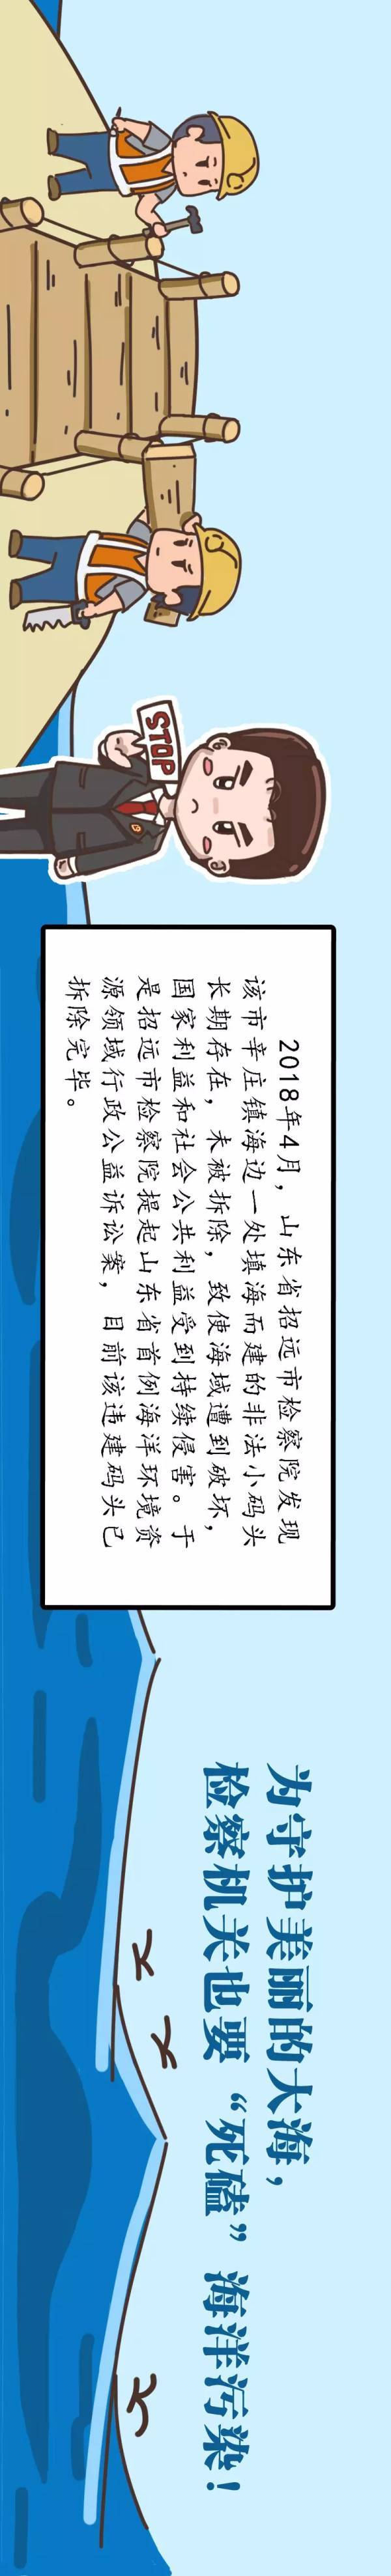 STOP
2018年4月，山东省招远市检察院发现
该市辛庄镇海边一处填海而建的非法小码头
长期存在，未被拆除，致使海域遭到破坏，
国家利益和社会公共利益受到持续侵害。于
是招远市检察院提起山东省首例海洋环境资
源领域行政公益诉讼案，目前该违建码头已
拆除完毕。
为守护美丽的大海，
检察机关也要“死磕”海洋污染！